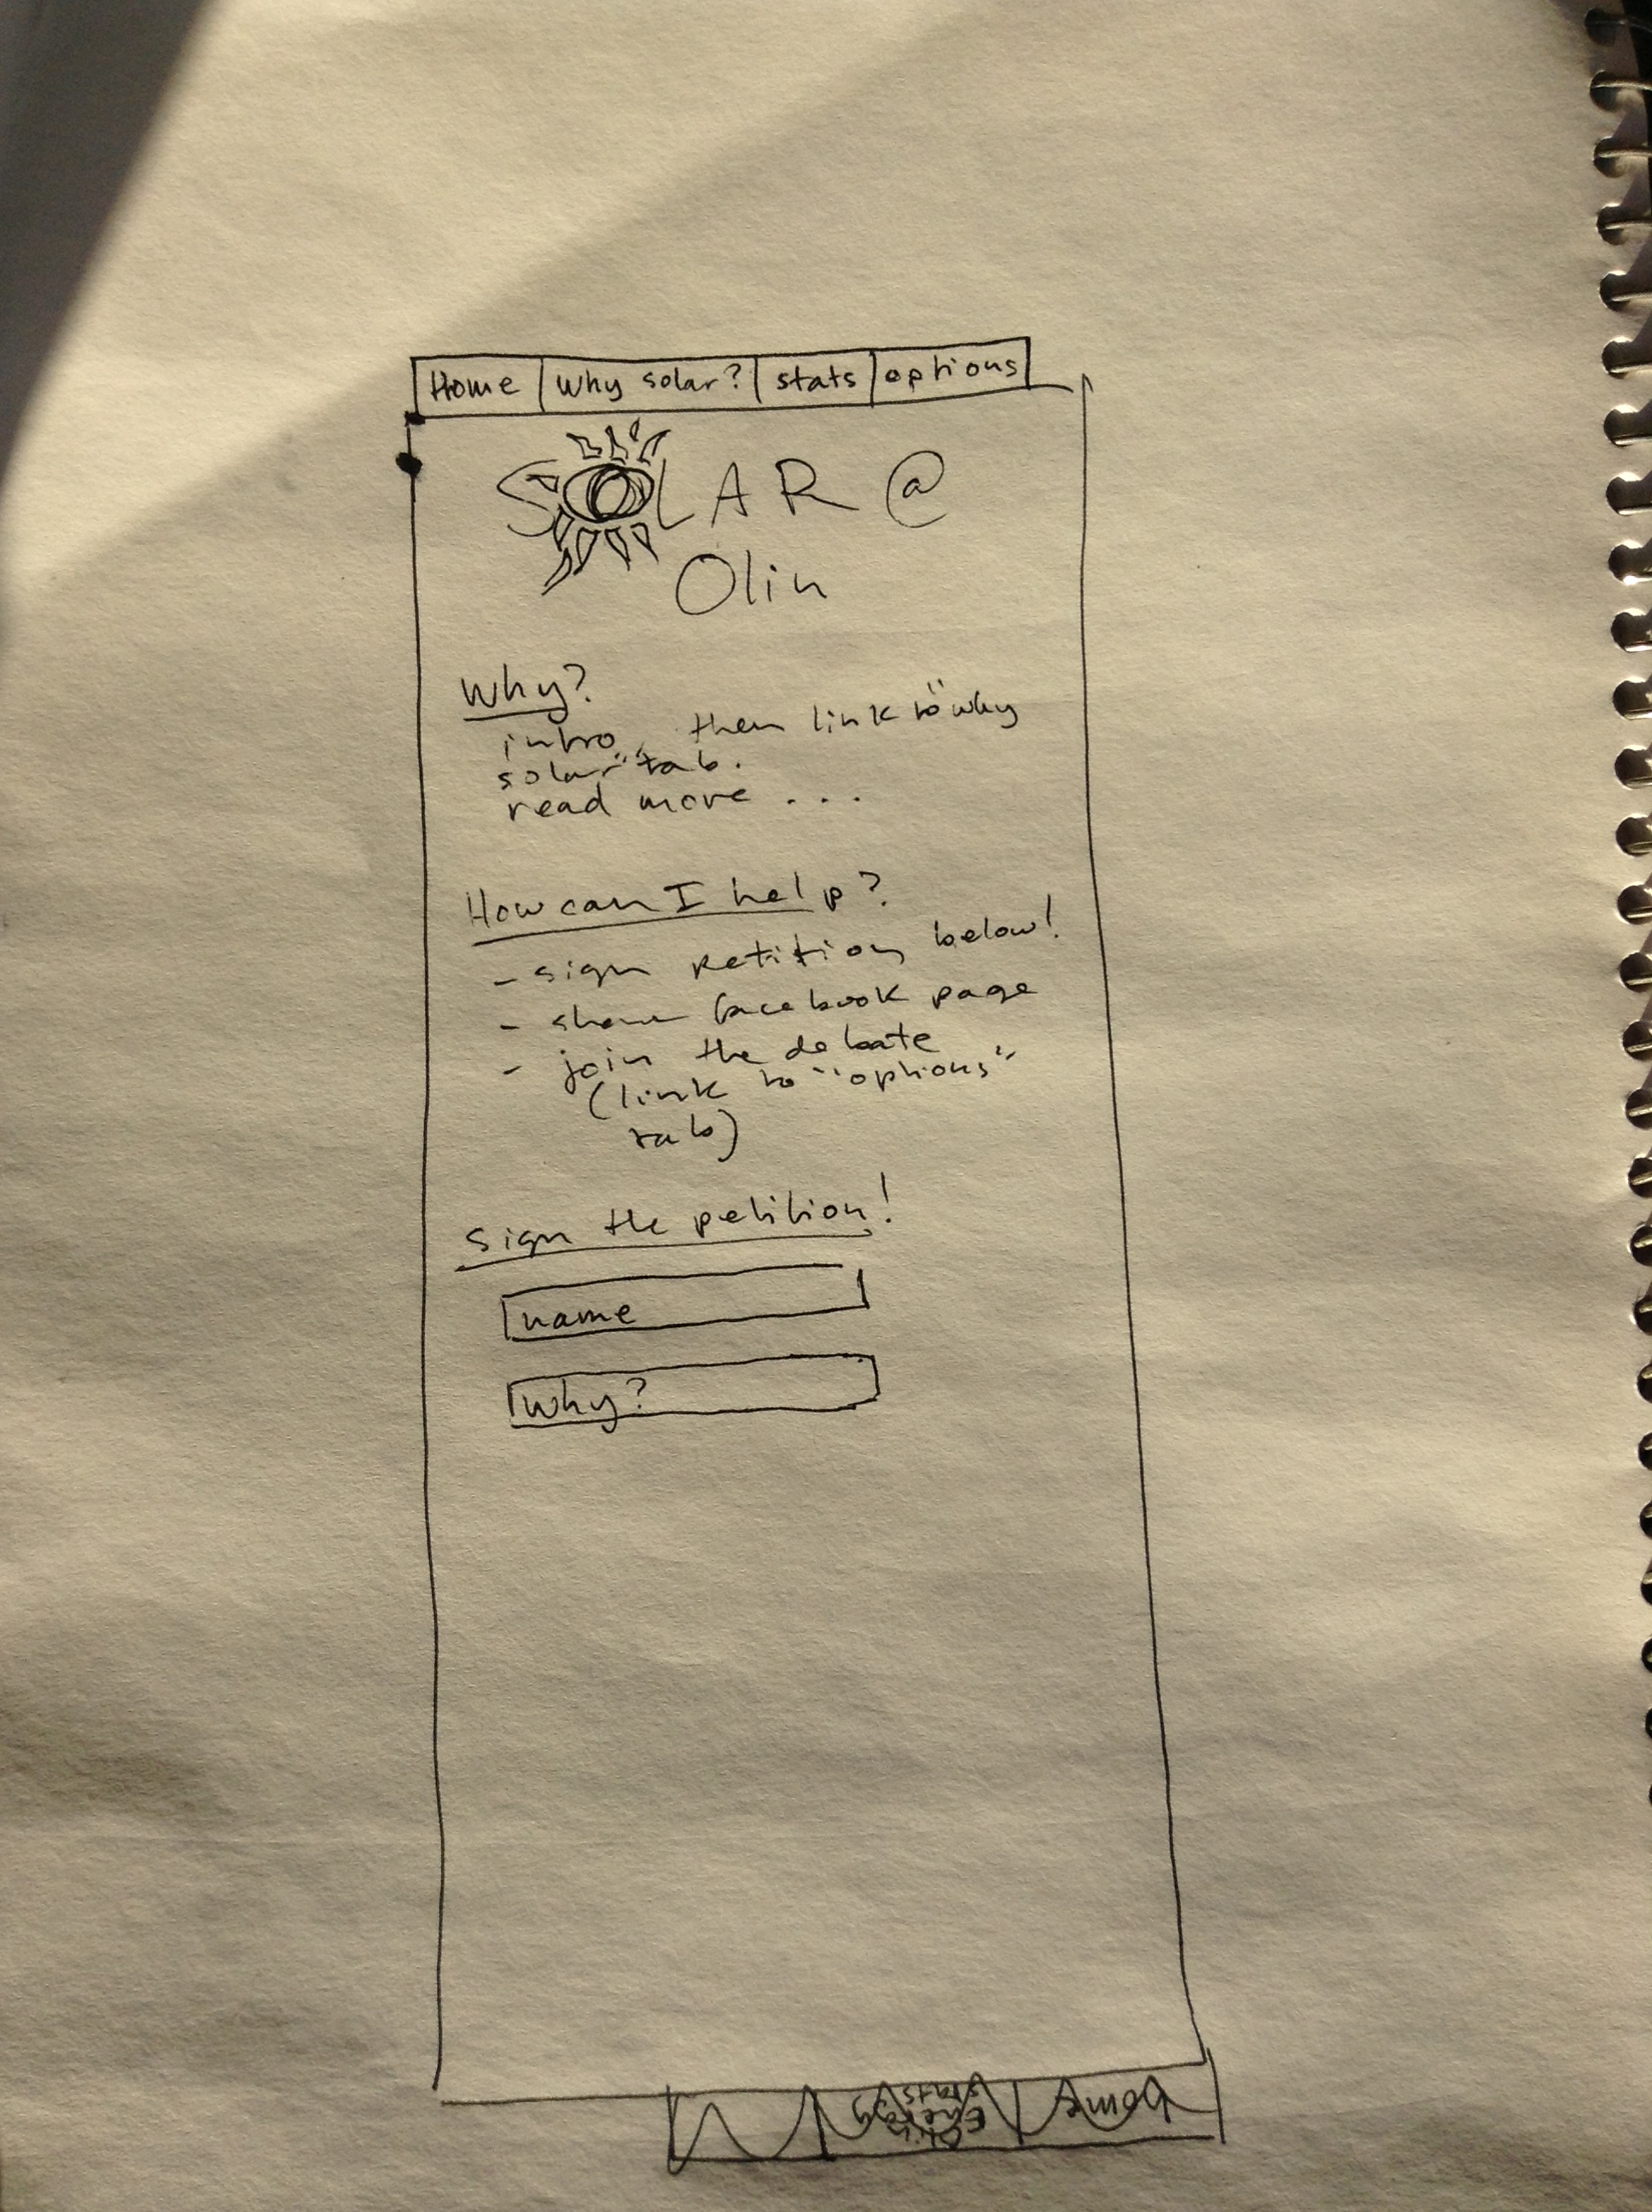 Home | Why solar? | stats | options
SOLAR @
Olin
Why?
intro, then link to "why
solar" tab.
read more ...
How can I help?
- sign petition below!
- share facebook page
- join the debate
(link to "options"
tab)
Sign the petition!
name
Why?
home
Olin
Energy
stats